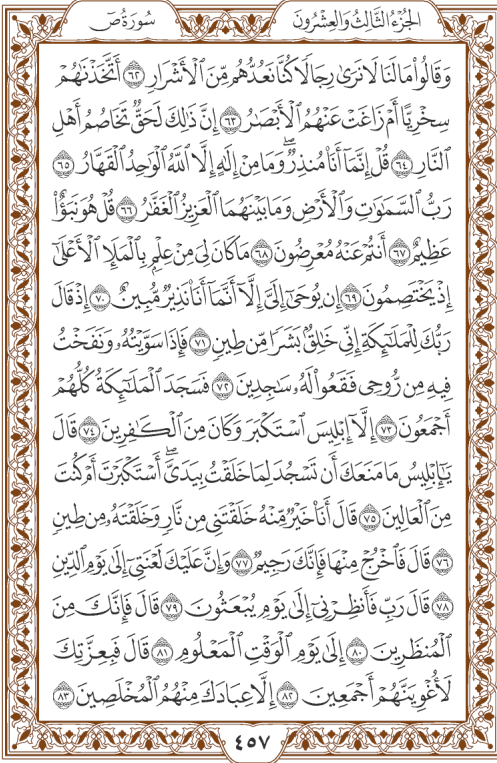 الجُزْءُ الثَّالِثُ وَالعِشْرُونَ سُورَةُ صٓ
وَقَالُواْ مَا لَنَا لَا نَرَىٰ رِجَالٗا كُنَّا نَعُدُّهُم مِّنَ ٱلۡأَشۡرَارِ ٦٢ أَتَّخَذۡنَٰهُمۡ
سِخۡرِيًّا أَمۡ زَاغَتۡ عَنۡهُمُ ٱلۡأَبۡصَٰرُ ٦٣ إِنَّ ذَٰلِكَ لَحَقّٞ تَخَاصُمُ أَهۡلِ
ٱلنَّارِ ٦٤ قُلۡ إِنَّمَآ أَنَا۠ مُنذِرٞۖ وَمَا مِنۡ إِلَٰهٍ إِلَّا ٱللَّهُ ٱلۡوَٰحِدُ ٱلۡقَهَّارُ ٦٥
رَبُّ ٱلسَّمَٰوَٰتِ وَٱلۡأَرۡضِ وَمَا بَيۡنَهُمَا ٱلۡعَزِيزُ ٱلۡغَفَّٰرُ ٦٦ قُلۡ هُوَ نَبَؤٌاْ
عَظِيمٌ ٦٧ أَنتُمۡ عَنۡهُ مُعۡرِضُونَ ٦٨ مَا كَانَ لِيَ مِنۡ عِلۡمِۭ بِٱلۡمَلَإِ ٱلۡأَعۡلَىٰٓ
إِذۡ يَخۡتَصِمُونَ ٦٩ إِن يُوحَىٰٓ إِلَيَّ إِلَّآ أَنَّمَآ أَنَا۠ نَذِيرٞ مُّبِينٌ ٧٠ إِذۡ قَالَ
رَبُّكَ لِلۡمَلَٰٓئِكَةِ إِنِّي خَٰلِقُۢ بَشَرٗا مِّن طِينٖ ٧١ فَإِذَا سَوَّيۡتُهُۥ وَنَفَخۡتُ
فِيهِ مِن رُّوحِي فَقَعُواْ لَهُۥ سَٰجِدِينَ ٧٢ فَسَجَدَ ٱلۡمَلَٰٓئِكَةُ كُلُّهُمۡ
أَجۡمَعُونَ ٧٣ إِلَّآ إِبۡلِيسَ ٱسۡتَكۡبَرَ وَكَانَ مِنَ ٱلۡكَٰفِرِينَ ٧٤ قَالَ
يَٰٓإِبۡلِيسُ مَا مَنَعَكَ أَن تَسۡجُدَ لِمَا خَلَقۡتُ بِيَدَيَّۖ أَسۡتَكۡبَرۡتَ أَمۡ كُنتَ
مِنَ ٱلۡعَالِينَ ٧٥ قَالَ أَنَا۠ خَيۡرٞ مِّنۡهُ خَلَقۡتَنِي مِن نَّارٖ وَخَلَقۡتَهُۥ مِن طِينٖ
٧٦ قَالَ فَٱخۡرُجۡ مِنۡهَا فَإِنَّكَ رَجِيمٞ ٧٧ وَإِنَّ عَلَيۡكَ لَعۡنَتِيٓ إِلَىٰ يَوۡمِ ٱلدِّينِ
٧٨ قَالَ رَبِّ فَأَنظِرۡنِيٓ إِلَىٰ يَوۡمِ يُبۡعَثُونَ ٧٩ قَالَ فَإِنَّكَ مِنَ
ٱلۡمُنظَرِينَ ٨٠ إِلَىٰ يَوۡمِ ٱلۡوَقۡتِ ٱلۡمَعۡلُومِ ٨١ قَالَ فَبِعِزَّتِكَ
لَأُغۡوِيَنَّهُمۡ أَجۡمَعِينَ ٨٢ إِلَّا عِبَادَكَ مِنۡهُمُ ٱلۡمُخۡلَصِينَ ٨٣
٤٥٧